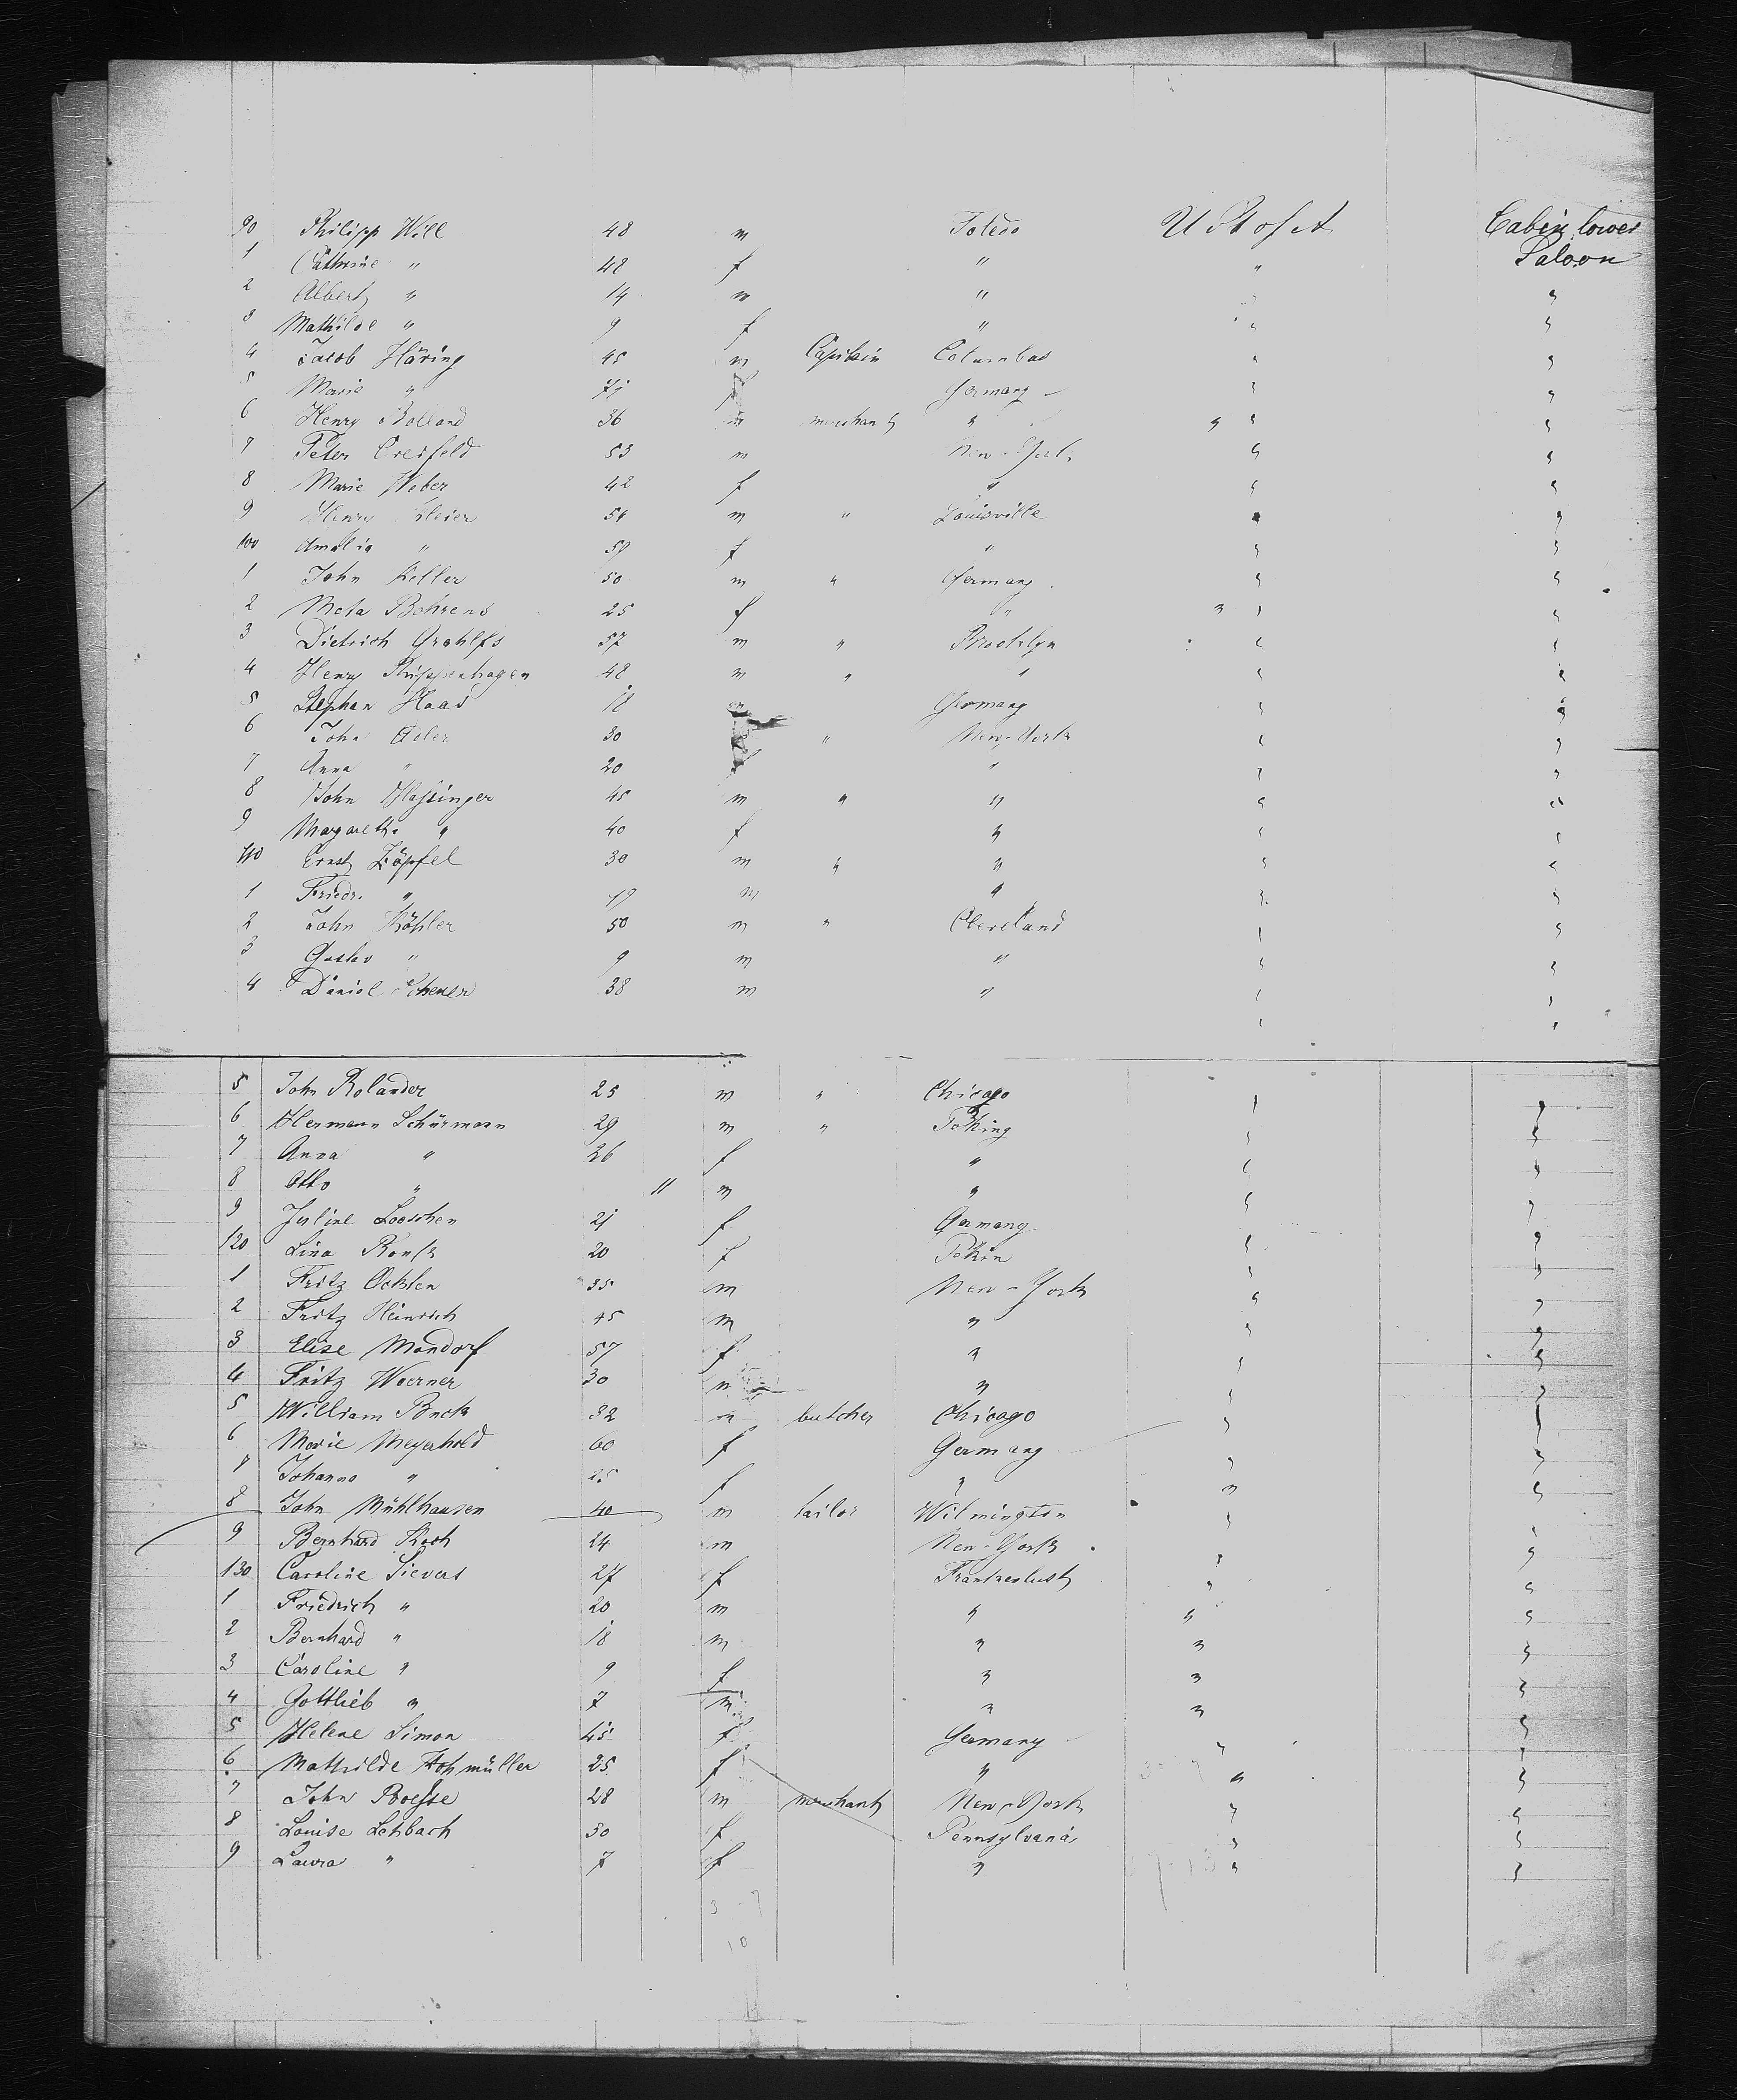 90 Philipp Will 48 m Toledo U St of A Cabin, lower
1 Cathrine " 42 f " " Saloon
2 Albert " 14 m " " "
3 Mathilde " 9 f " " "
4 Jacob Häring 45 m Capitain Columbus " "
5 Marie " f Germany " "
6 Henry Bolland 36 m merchant " " " "
7 Peter Creifeld 53 m New-York " "
8 Marie Weber 42 f " " "
9 Henry 54 m " Louisville " "
100 Amalia " f " " "
1 John Keller 50 m " Germany " "
2 Meta Behrens 25 f " " " "
3 Dietrich Grahlfs 57 m " Brooklyn " "
4 Henry Rüppenhagen 48 m " " " "
5 Stephan Haas 18 m Germany " "
6 John Adler 30 " New-York " "
7 Anna " 20 f " " "
8 John Hassinger 45 m " " " "
9 Margareth " 40 f " " "
110 Ernst Zöpfel 30 m " " " "
1 Friedr. " 19 m " " "
2 John Köhler 50 m " Cleveland " "
3 Gustav " 9 m " " "
4 Daniel Scheuer 38 m " " "
5 John Rolander 25 m " Chicago " "
6 Hermann Schürmann 29 m " Peking " "
7 Anna " 26 f " " "
8 Otto " 11 m " " "
9 Juline Looschen 21 f Germany " "
120 Lina 20 f Pekin " "
1 Fritz Ochlen 35 m New-York " "
2 Fritz Heinrich 45 m " " "
3 Elise Mondorf 57 f " " "
4 Fritz Woerner 30 m " " "
5 William Buck 32 m butcher Chicago " "
6 Marie Meyerhold 60 f Germany " "
7 Johanna " 25 f " " "
8 John Mühlhausen 40 m tailor Wilmington " "
9 Bernhard Koch 24 m New-York " "
130 Caroline Sievers 27 f Frankenlust " "
1 Friedrich " 20 m " " "
2 Bernhard " 18 m " " "
3 Caroline " 9 f " " "
4 Gottlieb " 7 m " " "
5 Helene Simon 45 f Germany " "
6 Mathilde 25 f " 3-7 " "
7 John Boesse 28 m merchant New-York " "
8 Louise Lehbach 50 f Pennsylvania " "
9 Laura " 7 f " " "
3-7
10